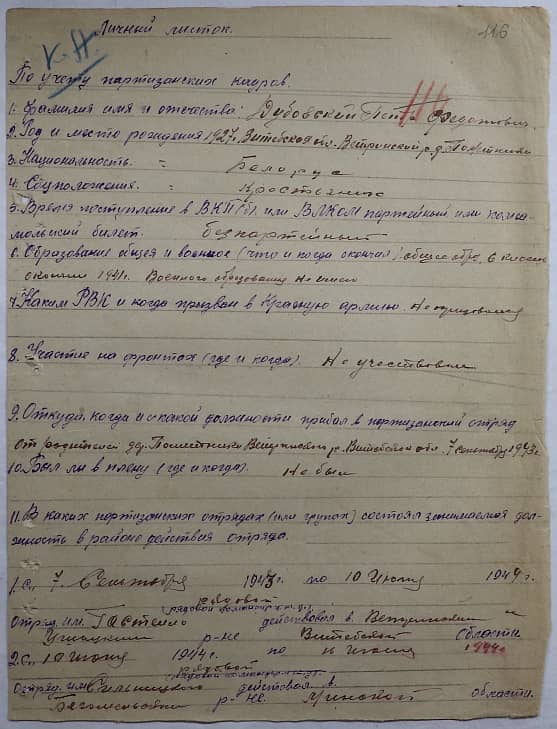 Личный листок.
116
По учету партизанских кадров.
1. Фамилия имя и отчество: Дубовский Федотович.
2. Год и место рождения 1927г. Витебская обл. Ветринский р.
3. Национальность. = Белорус
4. Соцположения. = Крестьянин
5. Время поступление в ВКП(б), или ВЛКСМ партейный, или комсо-
мольский билет. безпартейный
6. Образование общея и военное (что и когда окончил) общее обр. 6 классов
окончил 1941г. Военного образования не имею
7. Каким РВК и когда призван в Красную армию.
8. Участие на фронтах (где и когда). Не участвовал
9. Откуда, когда и с какой должности прибыл в партизанский отряд
от родителей дер. р. Витебской обл. 7 сентября 1943г.
10. Был ли в плену (где и когда). Не был
11. В каких партизанских отрядах (или групах) состоял занимаемая дол-
жность в районе действия отряда.
1. С, 7. Сентября 1943г. по 10 Июня 1944г.
рядовой
Отряд им. Гастелло действовал в. Ветринском и
Ушацком р-не Витебской области
2. С, 10 июня 1944г. по Июля 1944г.
рядовой
Отряд им. действовал в.
Бегомльском р-не. Минской области.